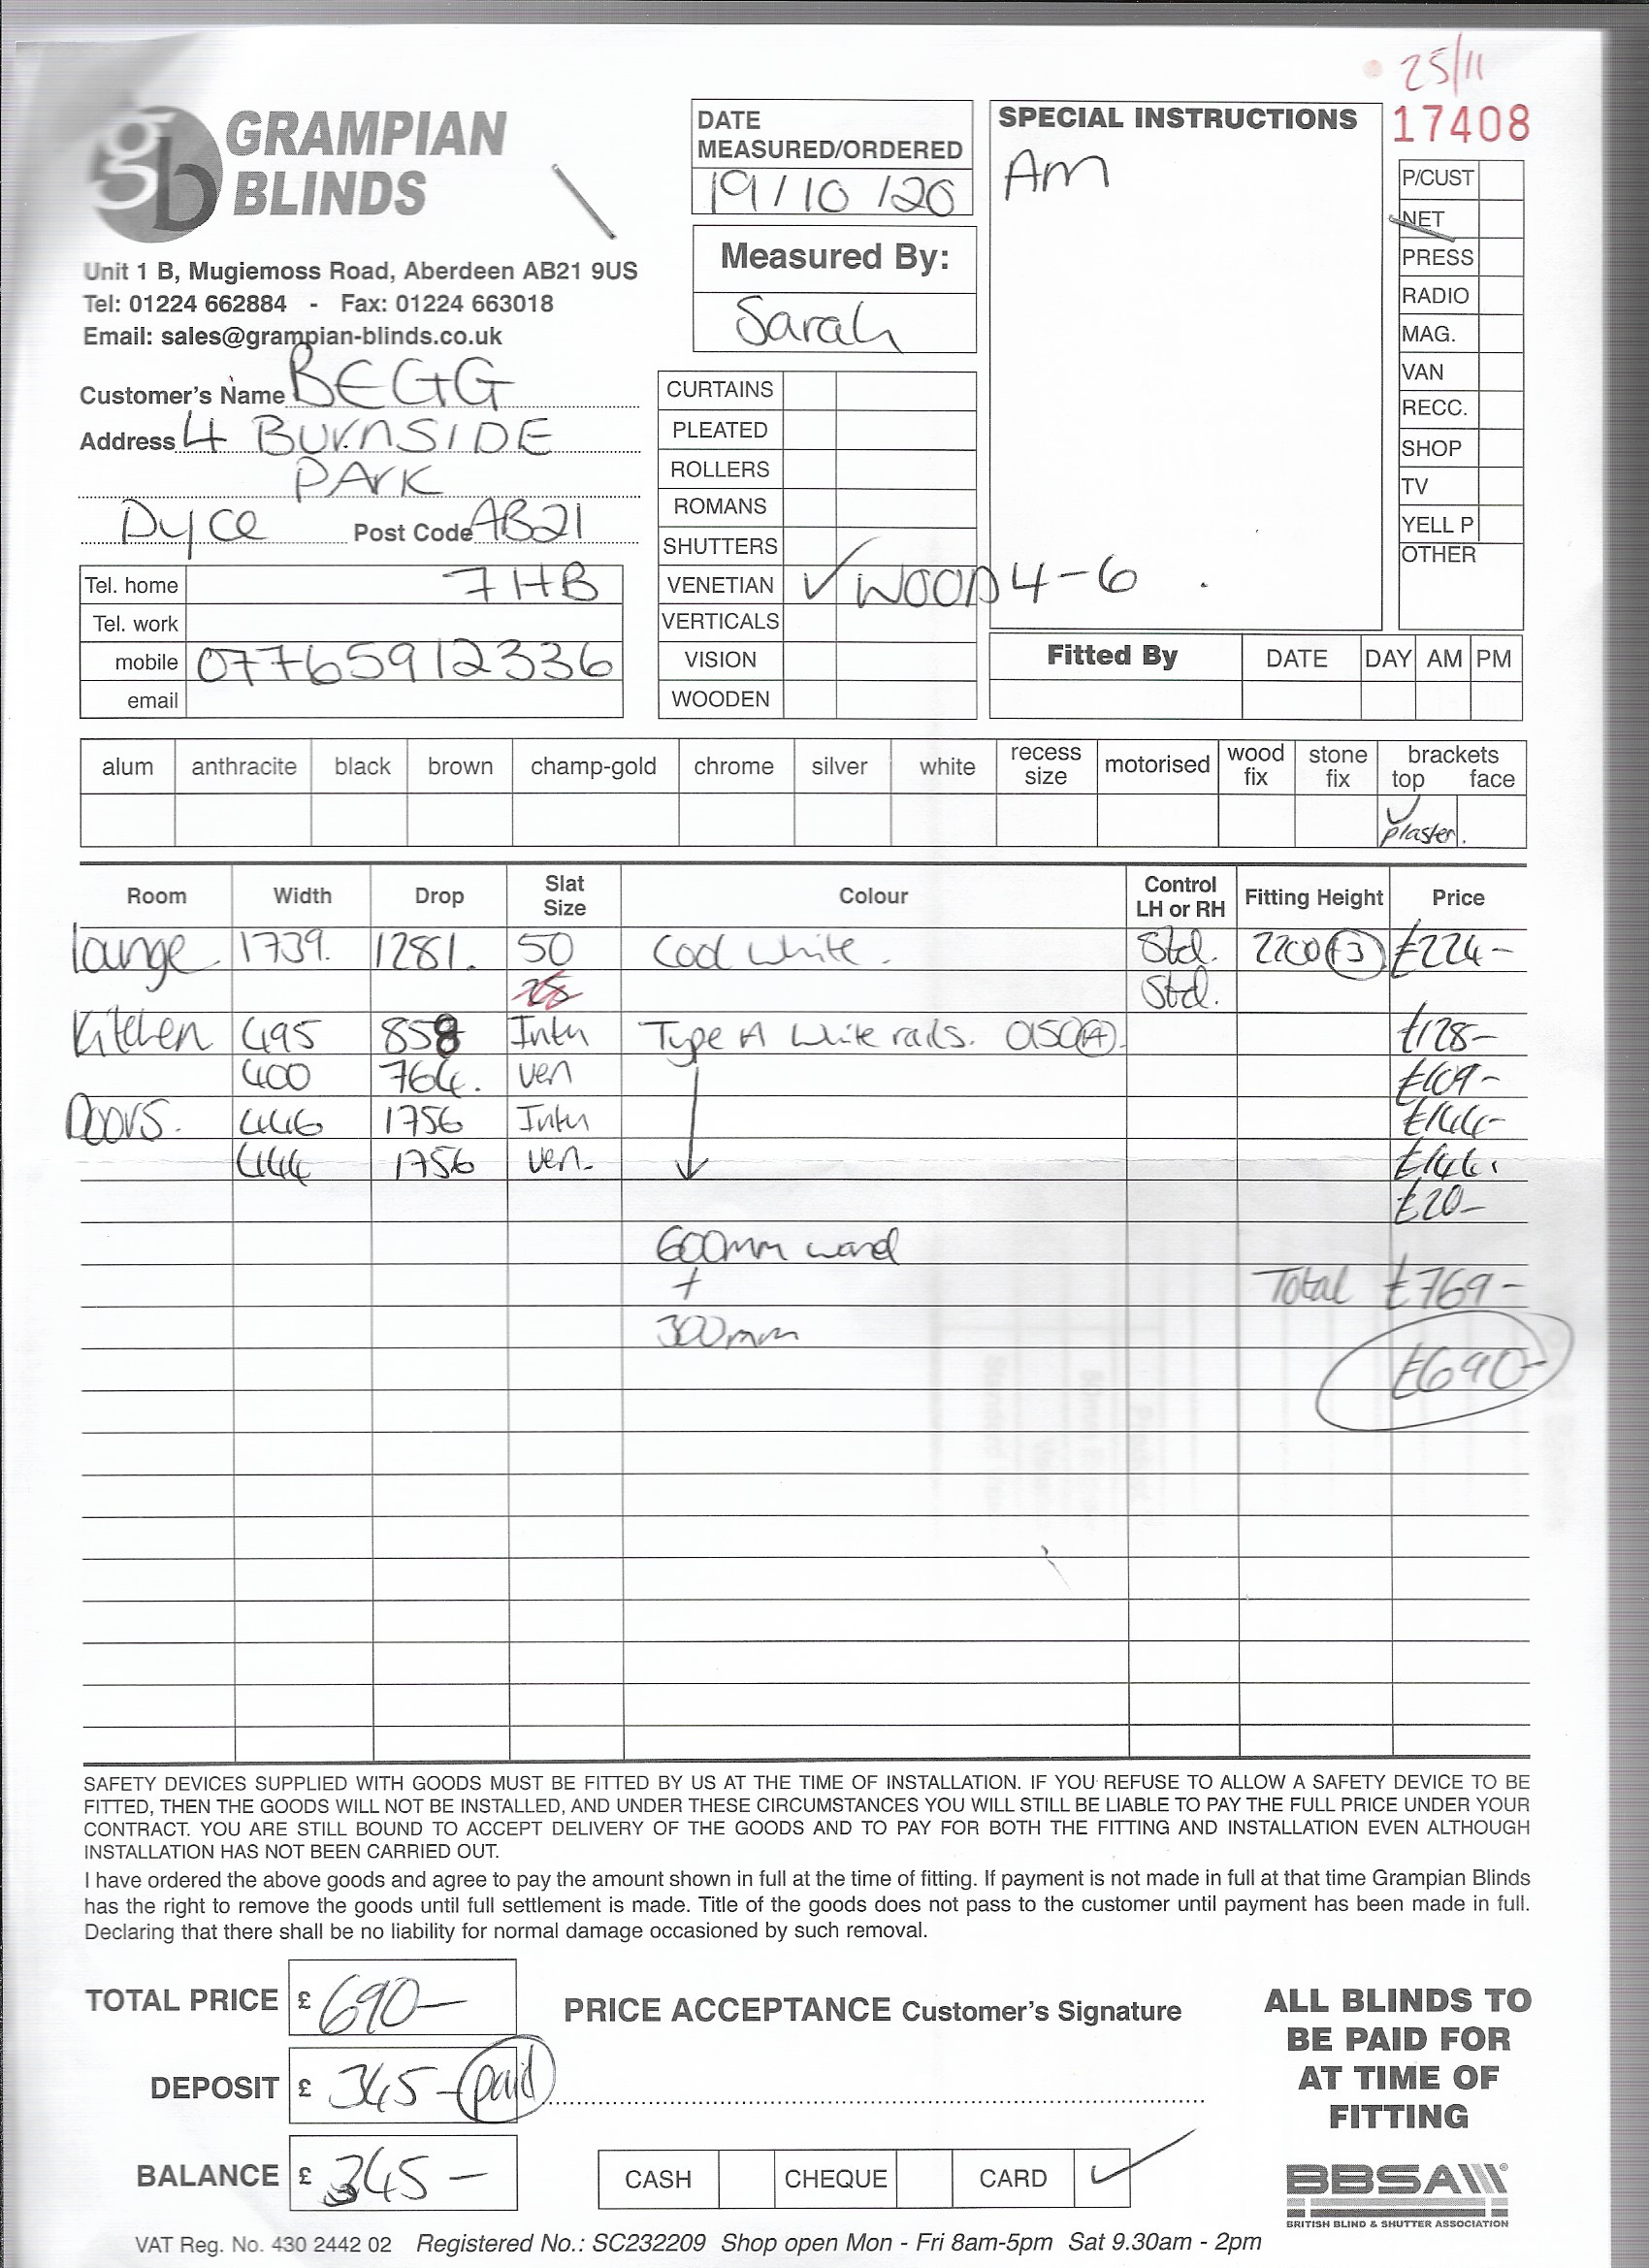 25/11
17408
gb GRAMPIAN
BLINDS
Unit 1 B, Mugiemoss Road, Aberdeen AB21 9US
Tel: 01224 662884 - Fax: 01224 663018
Email: sales@grampian-blinds.co.uk
Customer's Name BEGG
Address 4 BURNSIDE
PARK
Dyce Post Code AB21
Tel. home 7HB
Tel. work
mobile 07765912336
email
DATE
MEASURED/ORDERED
19/10/20
Measured By:
Sarah
CURTAINS
PLEATED
ROLLERS
ROMANS
SHUTTERS
VENETIAN ✓ WOOD 4-6
VERTICALS
VISION
WOODEN
SPECIAL INSTRUCTIONS
Am
P/CUST
NET
PRESS
RADIO
MAG.
VAN
RECC.
SHOP
TV
YELL P
OTHER
Fitted By DATE DAY AM PM
alum anthracite black brown champ-gold chrome silver white recess size motorised wood fix stone fix brackets top face
✓ plaster.
Room Width Drop Slat Size Colour Control LH or RH Fitting Height Price
Lounge 1739. 1281. 50 Cool White. Std. 2200 (F3) £224-
25 Std.
Kitchen 495 858 Intu Type A White rails. 0150(A). £128-
400 764. ven £109-
Doors. 446 1756 Intu £144-
444 1756 ven. £144.
£20-
600mm wand
+
300mm
Total £769-
£690-
SAFETY DEVICES SUPPLIED WITH GOODS MUST BE FITTED BY US AT THE TIME OF INSTALLATION. IF YOU REFUSE TO ALLOW A SAFETY DEVICE TO BE
FITTED, THEN THE GOODS WILL NOT BE INSTALLED, AND UNDER THESE CIRCUMSTANCES YOU WILL STILL BE LIABLE TO PAY THE FULL PRICE UNDER YOUR
CONTRACT. YOU ARE STILL BOUND TO ACCEPT DELIVERY OF THE GOODS AND TO PAY FOR BOTH THE FITTING AND INSTALLATION EVEN ALTHOUGH
INSTALLATION HAS NOT BEEN CARRIED OUT.
I have ordered the above goods and agree to pay the amount shown in full at the time of fitting. If payment is not made in full at that time Grampian Blinds
has the right to remove the goods until full settlement is made. Title of the goods does not pass to the customer until payment has been made in full.
Declaring that there shall be no liability for normal damage occasioned by such removal.
TOTAL PRICE £ 690-
PRICE ACCEPTANCE Customer's Signature
DEPOSIT £ 345- paid
BALANCE £ 345-
CASH CHEQUE CARD ✓
ALL BLINDS TO
BE PAID FOR
AT TIME OF
FITTING
BBSA
BRITISH BLIND & SHUTTER ASSOCIATION
VAT Reg. No. 430 2442 02 Registered No.: SC232209 Shop open Mon - Fri 8am-5pm Sat 9.30am - 2pm